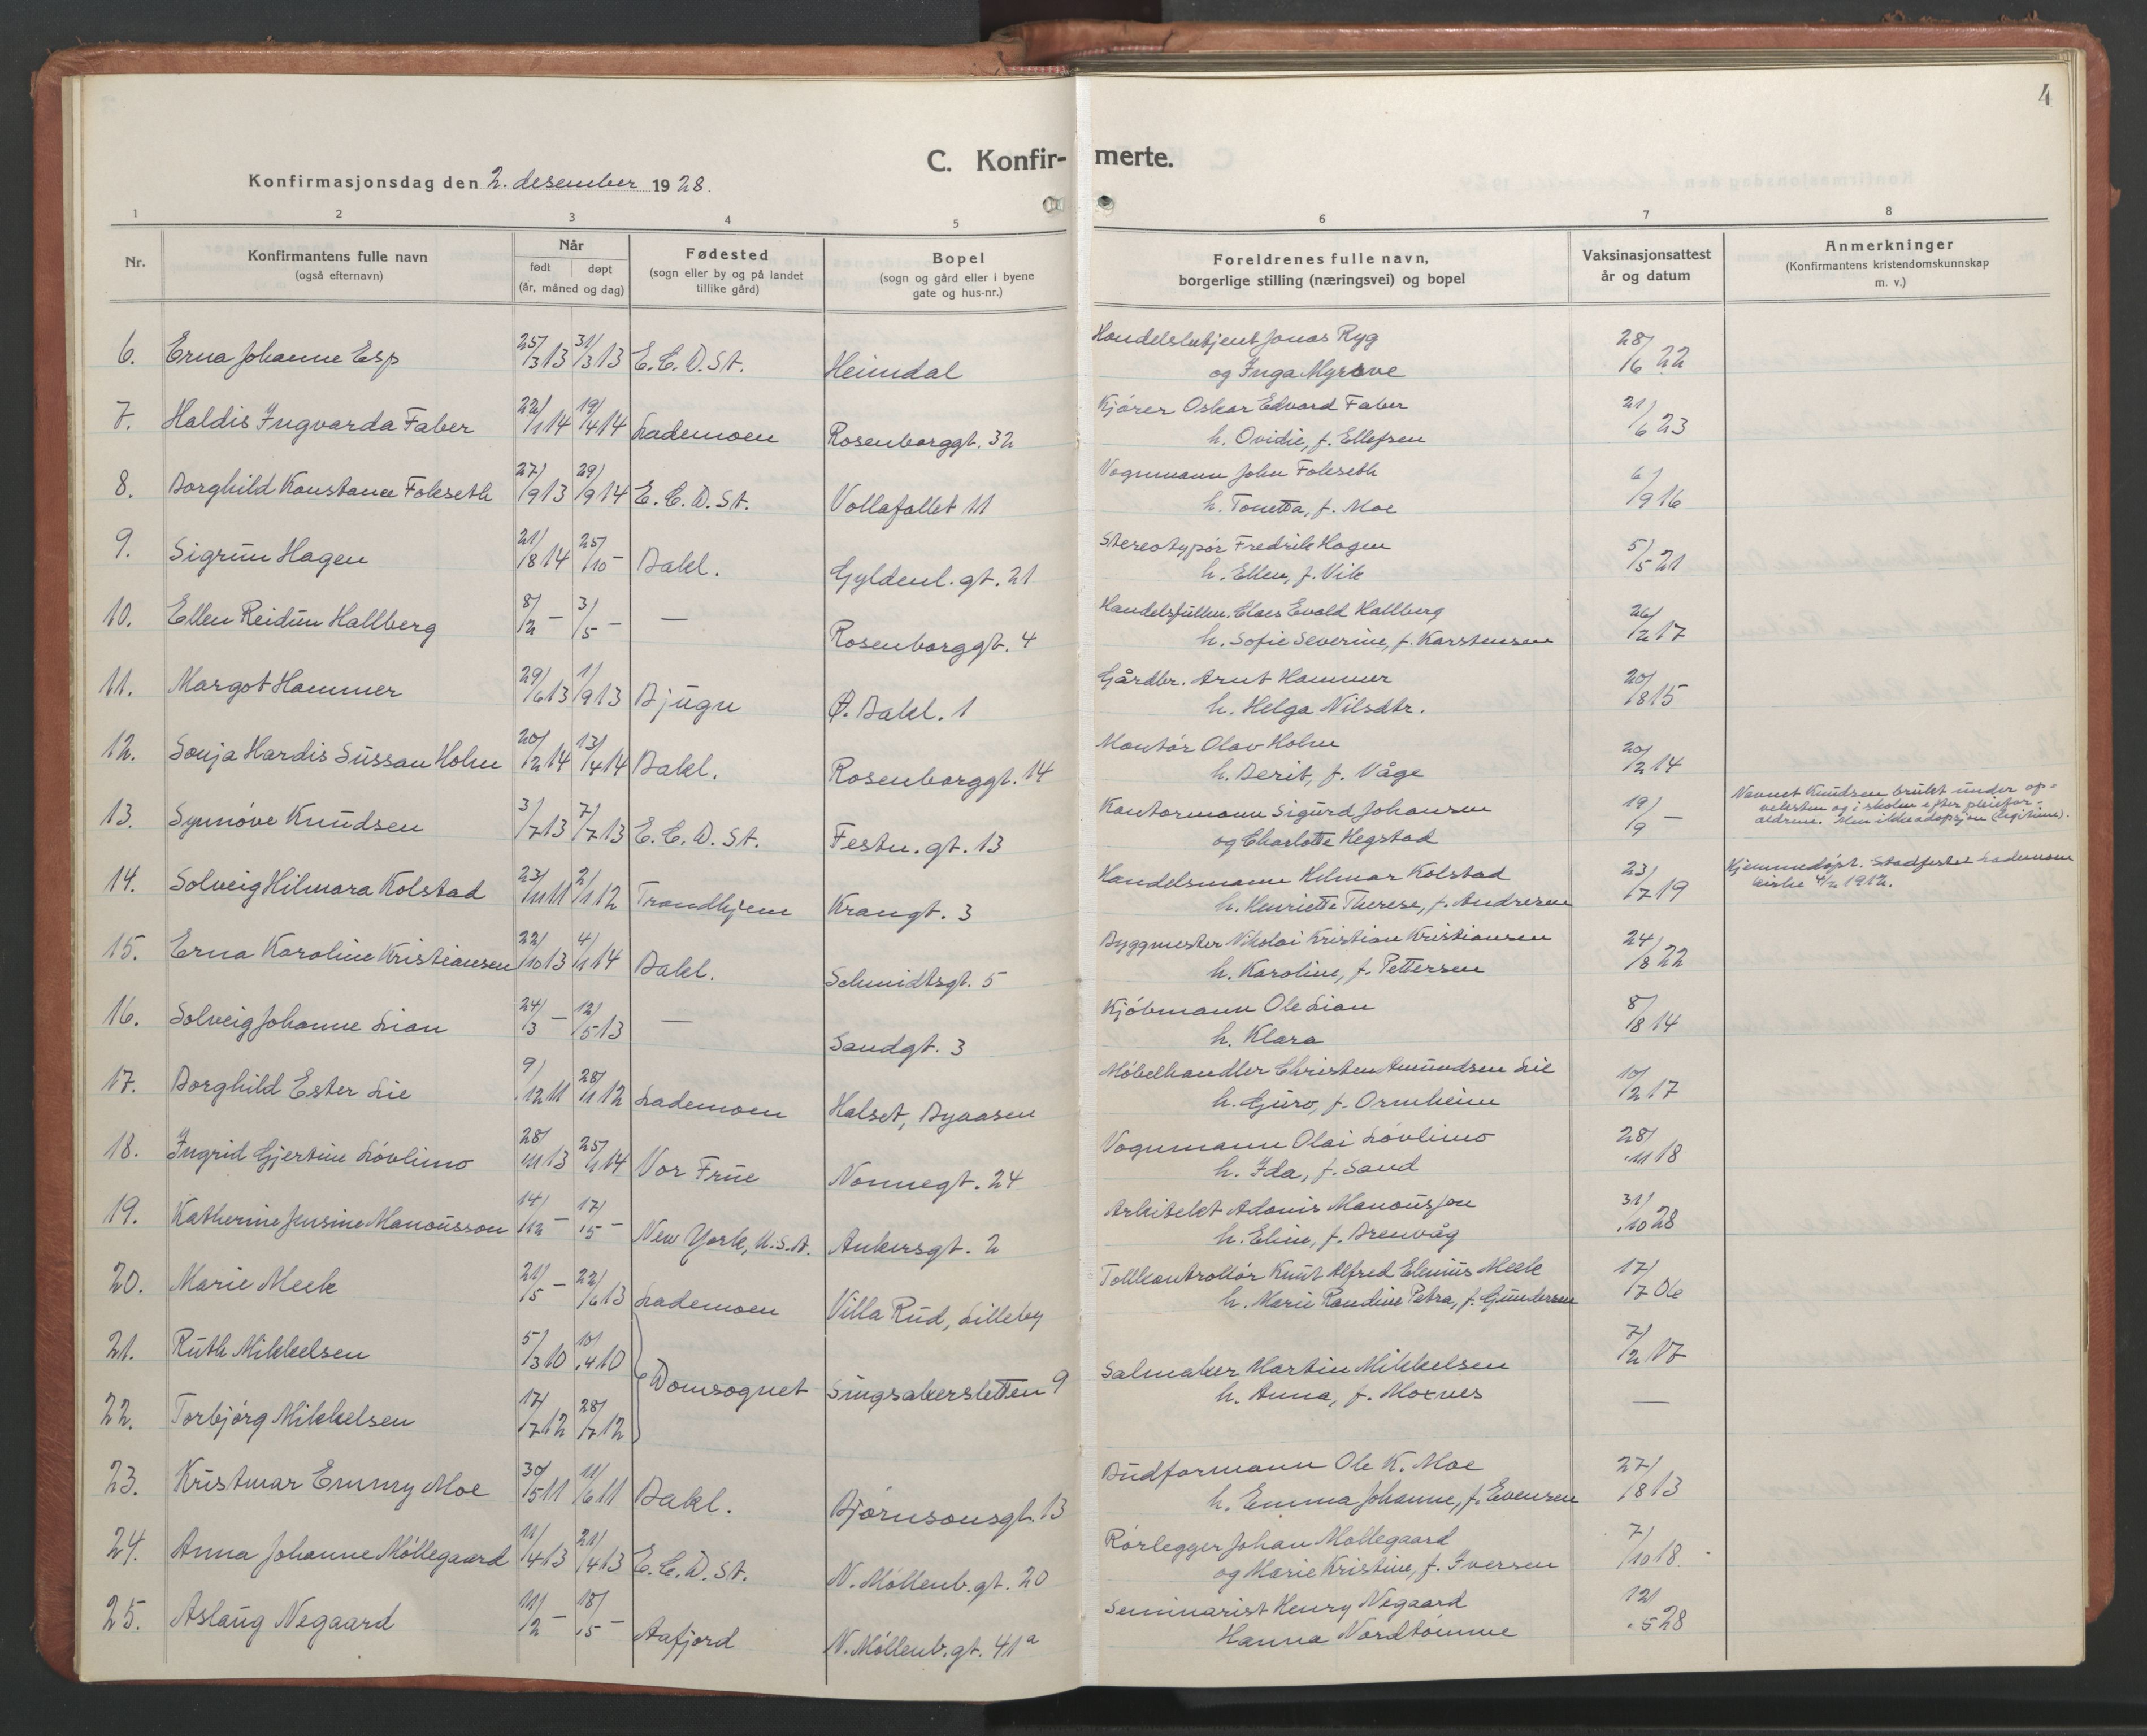 4
C. Konfir- merte.
Konfirmasjonsdag den 2. desember 1928.
1 2 3 4 5 6 7 8
Nr.
Konfirmantens fulle navn
(også efternavn)
Når
født døpt
(år, måned og dag)
Fødested
(sogn eller by og på landet
tillike gård)
Bopel
(sogn og gård eller i byene
gate og hus-nr.)
Foreldrenes fulle navn,
borgerlige stilling (næringsvei) og bopel
Vaksinasjonsattest
år og datum
Anmerkninger
(Konfirmantens kristendomskunnskap
m. v.)
6. Erna Johanne Esp 25/3 13 31/3 13 E. C. D. St. Heimdal Handelsbetjent Jonas Ryg 28/6 22
og Inga Myrove
7. Haldis Ingvarda Faber 22/1 14 19/4 14 Lademoen Rosenborggt. 32 Kjører Oskar Edvard Faber 21/6 23
h. Ovidie, f. Ellefsen
8. Borghild Konstance Folseth 27/9 13 29/9 14 E. C. D. St. Vollafallet 11 Vognmann John Folseth 6/9 16
h. Tonetta, f. Moe
9. Sigrun Hagen 21/8 14 25/10 - Bakl. Gyldenl. gt. 21 Stereotypør Fredrik Hagen 5/5 21
h. Ellen, f. Vik
10. Ellen Reidun Hallberg 8/2 - 3/5 - — Rosenborggt. 4 Handelsfullm. Claes Evald Hallberg 26/2 17
h. Sofie Severine, f. Karstensen
11. Margot Hammer 29/6 13 1/9 13 Bjugn Ø. Bakl. 1 Gårdbr. Arnt Hammer 20/8 15
h. Helga Nilsdtr.
12. Sonja Hardis Sussan Holm 20/2 14 13/4 14 Bakl. Rosenborggt. 14 Montør Olav Holm 20/2 14
h. Berit, f. Våge
13. Synnøve Knudsen 3/7 13 7/7 13 E. C. D. St. Festn. gt. 13 Kontormann Sigurd Johansen 19/9 — Navnet Knudsen brukt under op-
og Charlotte Hegstad veksten og i skolen efter pleiefor-
eldrene. Men ikke adopsjon (legitime).
14. Solveig Hilmara Kolstad 23/11 11 2/1 12 Trondhjem Krangt. 3 Handelsmann Hilmar Kolstad 23/7 19 Hjemmedøpt. Stadfestet Lademoen
h. Henriette Therese, f. Andresen kirke 4/2 1912.
15. Erna Karoline Kristiansen 22/10 13 4/1 14 Bakl. Schmidtsgt. 5 Byggmester Nikolai Kristian Kristiansen 24/8 22
h. Karoline, f. Pettersen
16. Solveig Johanne Lian 24/3 - 12/5 13 — Sandgt. 3 Kjøbmann Ole Lian 8/8 14
h. Klara
17. Borghild Ester Lie 9/12 11 28/1 12 Lademoen Halset, Byaasen Møbelhandler Christen Amundsen Lie 10/2 17
h. Guro, f. Ormheim
18. Ingrid Gjertine Løvlimo 28/11 13 25/1 14 Vor Frue Nonnegt. 24 Vognmann Olai Løvlimo 28/11 18
h. Ida, f. Sand
19. Katherine Jensine Manousson 14/12 - 17/5 - New York, U.S.A. Ankersgt. 2 Arkitekt Adonis Manousson 31/10 28
h. Eline, f. Brenvåg
20. Marie Meek 21/5 - 22/6 13 Lademoen Villa Rud, Lilleby Tollkontrollør Knut Alfred Elenius Meek 17/7 06
h. Marie Randine Petra, f. Gundersen
21. Ruth Mikkelsen 5/3 10 10/4 10 Domsognet Singsakersletten 9 Salmaker Martin Mikkelsen 7/2 17
h. Anna, f. Moxnes
22. Torbjørg Mikkelsen 17/7 12 28/7 12 —
23. Kristmar Emmy Moe 30/5 11 11/6 11 Bakl. Bjørnsonsgt. 13 Budformann Ole K. Moe 27/8 13
h. Emma Johanne, f. Evensen
24. Anna Johanne Møllegaard 11/4 13 21/4 13 E. C. D. St. N. Møllenb. gt. 20 Rørlegger Johan Møllegaard 7/10 18.
og Marie Kristine, f. Iversen
25. Aslaug Negaard 11/2 - 18/5 - Aafjord N. Møllenb. gt. 41a Seminarist Henry Negaard 12/5 28
Hanna Nordtømme